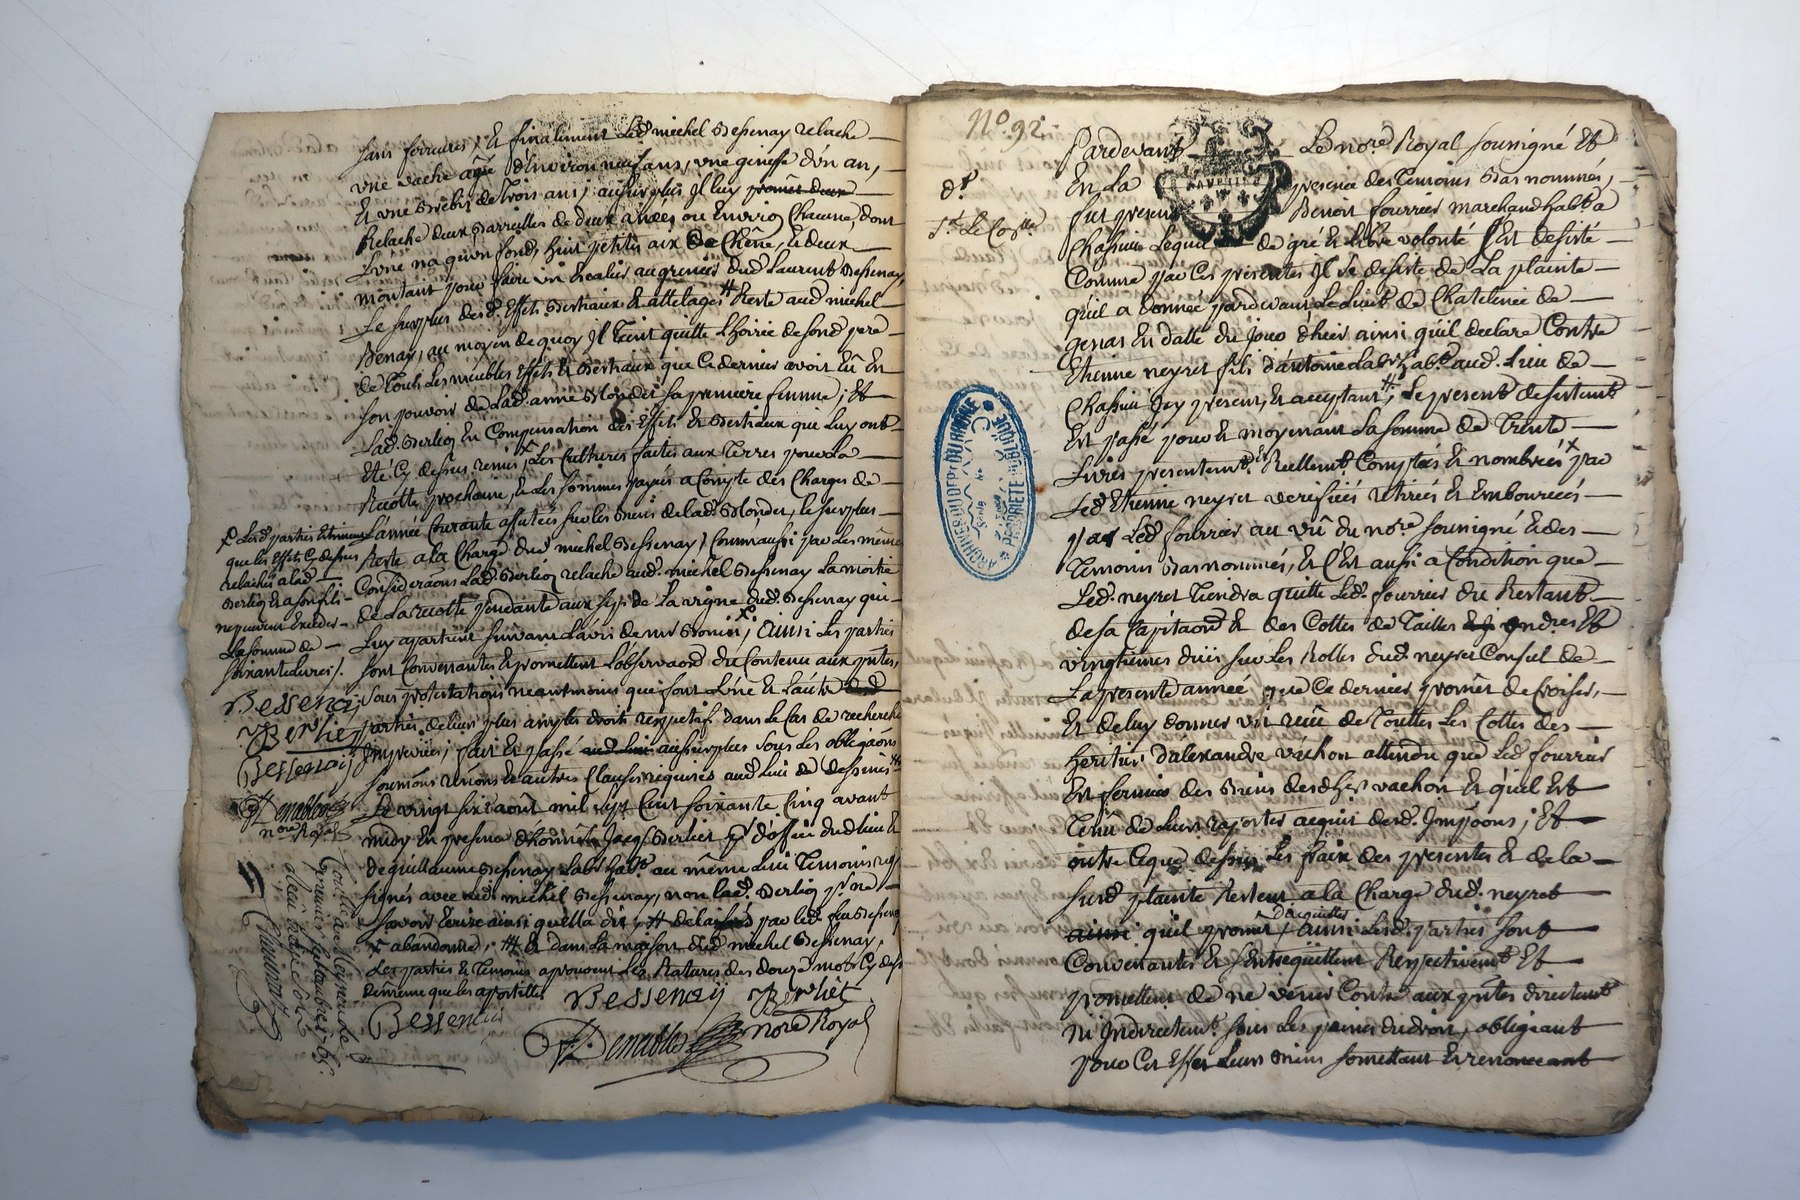 sans ferrures, Et finalement led. michel Bessenay relache
une vache agée d'Environ neuf ans, une genisse d'un an,
Et une Brebis de trois ans, au surplus Il luy promet deux
Relache deux Barreilles de deux anées ou Environ Chacune, dont
L'une n'a qu'un fond, huit petits aix de Chêne, & deux
montant pour faire un Escalier au grenier dud. Laurent Bessenay,
Le surplus desd. Effets Bestiaux & attelages # Reste aud. michel
Benay, au moyen de quoy Il tient quitte L'hoirie de sond. pere
de tout Les meubles Effets & Bestiaux que Ce dernier avoit Eû En
son pouvoir de Lad. anne Blondet sa premiere femme; Et
Lad. Berlioz En Compensation des Effets & Bestiaux qui Luy ont
Eté Cy dessus remis, Les Cultures faites aux Terres pour La
Recolte prochaine, & Les sommes payées a Compte des Charges de
L'année Courante afutées sur les Biens de lad. Blondet, le surplus
Reste a la Charge dud. michel Bessenay, Comm' aussi par Les mêmes
Consideraons Lad. Berlioz relache aud. michel Bessenay La moitié
de La recolte pendante aux seps de La vigne dud. Bessenay qui
Luy apartient suivant L'avis de mr Bonin; ainsi Les parties
sont Convenantes & promettent L'observaon du Contenu aux pntes,
sous protestations neantmoins que font L'une & L'autre
parties de leurs plus amples droits respectif dans le Cas de recherche
Imprevües; fait & passé au surplus sous Les obligaons
soumons renons & autres Clauses requises aud. Lieu de dessines
Le vingt six aoust mil sept Cent soixante Cinq avant
midy En presence d'honnête Jacq. Berlier pr d'office dud. lieu &
de guillaume Bessenay Labr habt. au même Lieu Temoins req.
signés avec led. michel Bessenay, non lad. Berlioz pr. ne
savoir Ecrire ainsi quelle a dit; # delaissés par led. feu Bessenay
x abandonne; ## & dans La maison dud. michel Bessenay,
Les parties & Temoins aprouvent Les Ratures des douze mots Cy dess
de meme que les apostilles
x Lesd. parties Estiment
que les Effets Cy dessus
relachés a lad.
Berlioz & a son fils
ne peuvent Exceder
La somme de
soixante Livres.
Bessenay
Berlhet
Bessenay
nore Royal
Bessenay Berlhet
Bessenay
nore Royal
Controllé a Meyzieu le
premier septembre 1765.
No. 92
Pardevant Le nore. Royal soussigné Et
En La presence des Temoins Bas nommés,
fut present Benoit fourrier marchand habt. a
Chassieu Lequel de gré & Libre volonté s'Est desisté
Comme par Ces presentes Il se desiste de La plainte
qu'il a donnée pardevant Le Juge de Chatelenie de
genas En datte du Jour d'hier ainsi qu'il declare Contre
Etienne neyret fils d'antoine Labr habt. aud. Lieu de
Chassieu Icy present, & acceptant, # Le present desistemt
Est passé pour & moyenant La somme de Trente
Livres presentemt. & Reellemt. Comptées & nombrées x par
Led. Etienne neyret verifiées retirées & Emboursées
par Led. fourrier au vû du nore. soussigné & des
Temoins Bas nommés, & C'Est aussi a Condition que
Led. neyret Tiendra quitte Led. fourrier du Restant
de sa Capitaon & des Cottes de Tailles Et
vingtiemes düs sur Les Rolles dud. neyret Consul de
La presente année, que Ce dernier promet de Croiser,
Et de luy donner un reçu de Touttes Les Cottes des
heritiers d'alexandre vachon attendu que Led. fourrier
Est fermier des Biens desd. hers vachon & qu'il Est
Tenû de Leurs raporter acquis desd. Impoons; Et
outre Ce que dessus Les fraix des presentes & de la
susd. plainte Resteront a la Charge dud. neyret
ainsi qu'il promet d'acquitter, ainsi Lesd. parties sont
Convenantes & s'Entrequittent Respectivemt. Et
promettent de ne venir Contre aux pntes directemt.
ni Indirectemt. sous Les peines du droit, obligeant
pour Cet Effet Leurs Biens somettant & renonceant
ARCHIVES DU DEPt DU RHONE
PROPRIETE PUBLIQUE